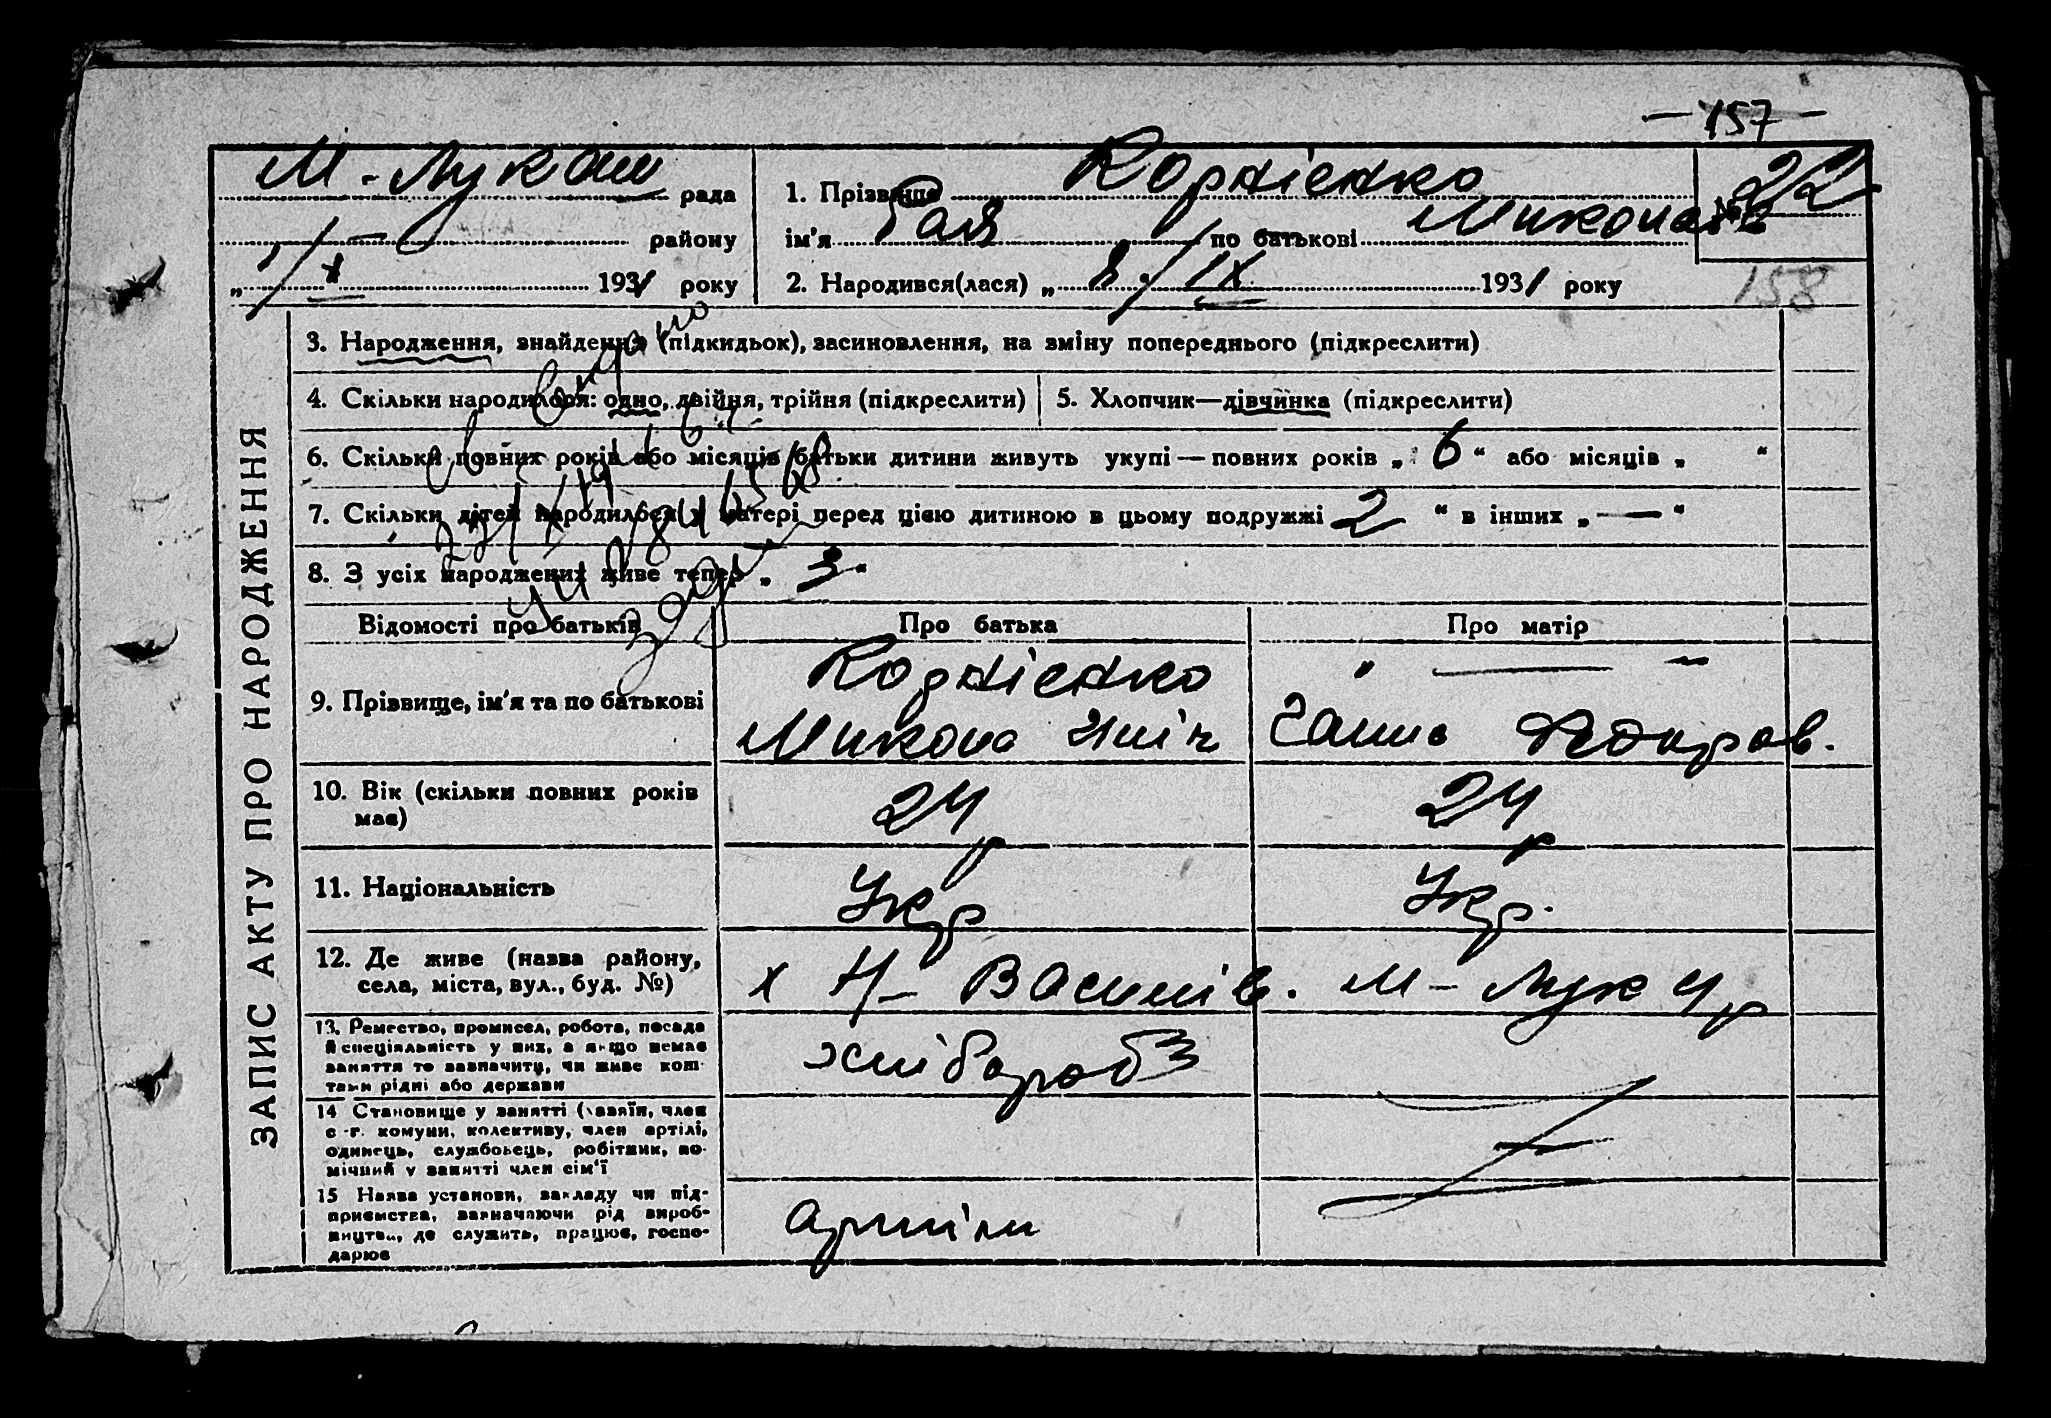 — 157 —
М-Лукаш рада
1. Прізвище Корнієнко
22
району
ім'я Рая по батькові Микола
„ 1/X 1931 року
2. Народився(лася) „ 8/IX 1931 року
158
3. Народження, знайдення (підкидьок), засиновлення, на зміну попереднього (підкреслити)
4. Скільки народилося: одно, двійня, трійня (підкреслити)
5. Хлопчик—дівчинка (підкреслити)
6. Скільки повних років або місяців батьки дитини живуть укупі — повних років „ 6 “ або місяців „ “
7. Скільки дітей народилося у матері перед цією дитиною в цьому подружжі 2 “ в інших „ — “
8. З усіх народжених живе тепер „ 3 “
видано
ЗАПИС АКТУ ПРО НАРОДЖЕННЯ
Відомості про батьків
Про батька
Про матір
9. Прізвище, ім'я та по батькові
Корнієнко
Микола
„ — “
Ганна
10. Вік (скільки повних років має)
24 р
24 р
11. Національність
Укр
Укр.
12. Де живе (назва району, села, міста, вул., буд. №)
х Н- Василів.
М- Лук
13. Ремество, промисел, робота, посада й спеціяльність у них, а якщо немає заняття то зазначити, чи живе коштами рідні або держави
хлібороб
14 Становище у занятті (хазяїн, член с.-г. комуни, колективу, член артілі, одинець, службовець, робітник, помічний у занятті член сім'ї
15 Назва установи, закладу чи підприємства, зазначаючи рід виробництва, де служить, працює, господарює
артіли